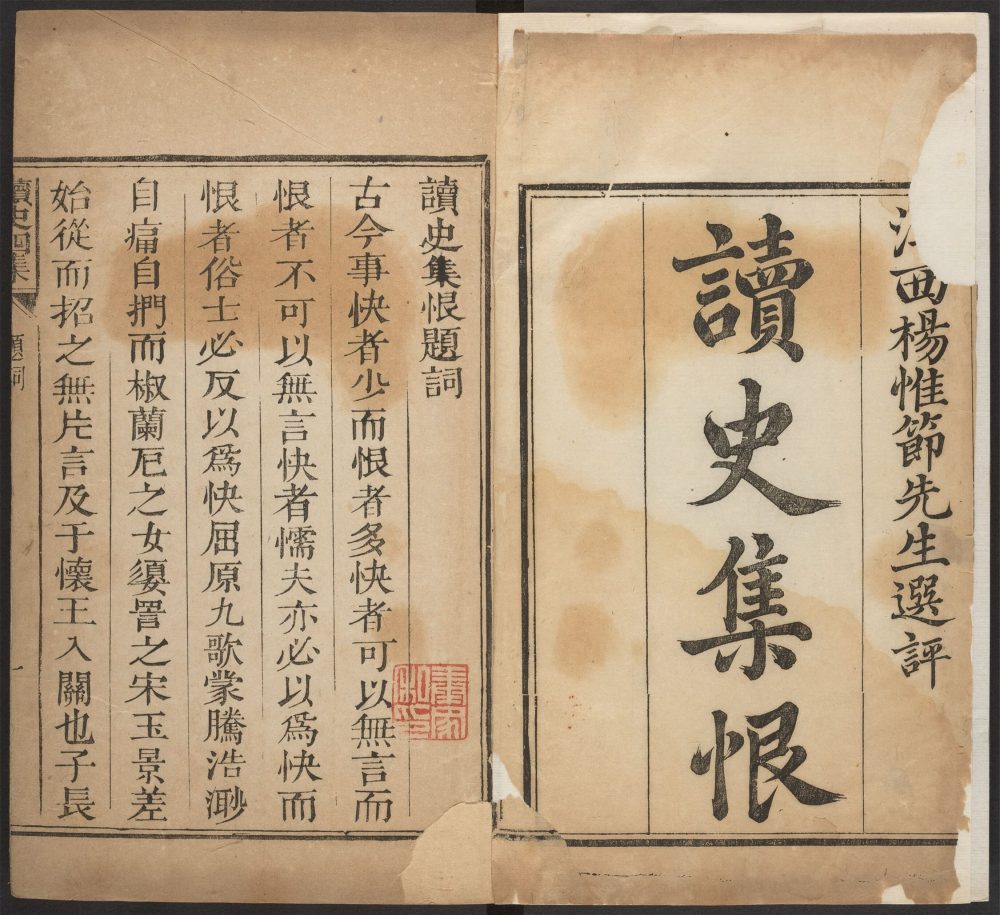 江西楊惟節先生選評
讀史集恨
讀史集恨題詞
古今事快者少而恨者多快者可以無言而
恨者不可以無言快者懦夫亦必以爲快而
恨者俗士必反以爲快屈原九歌蒙騰浩渺
自痛自捫而椒蘭厄之女嬃詈之宋玉景差
始從而招之無片言及于懷王入關也子長
讀史四集
題詞
一